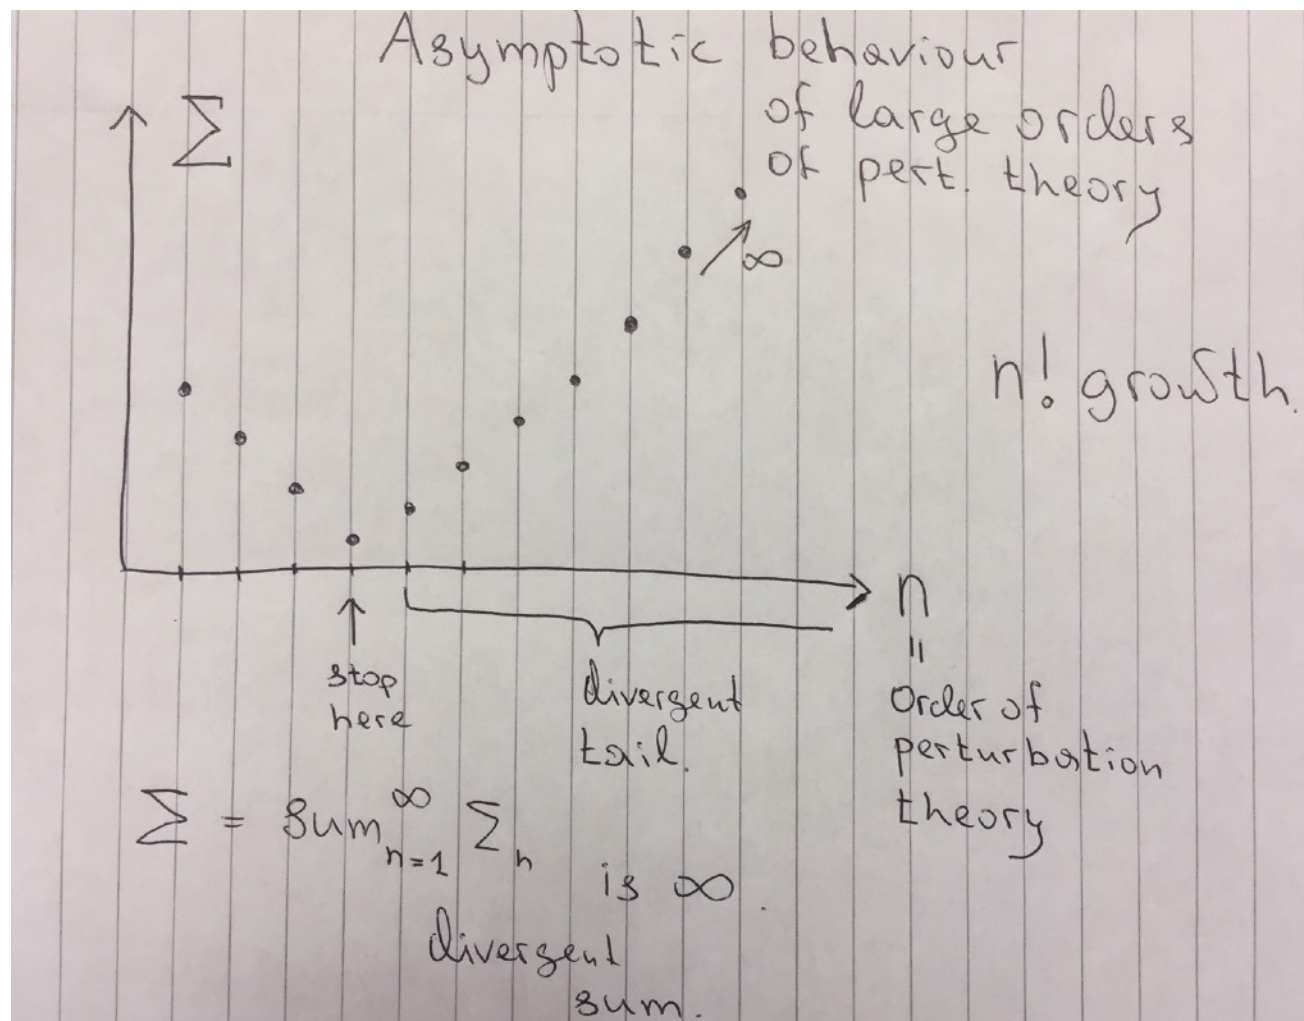 Asymptotic behaviour
of large orders
of pert. theory
Σ
∞
n! growth.
n
=
Order of
perturbation
theory
stop
here
divergent
tail.
Σ = sum n=1 ∞ Σn is ∞.
divergent
sum.